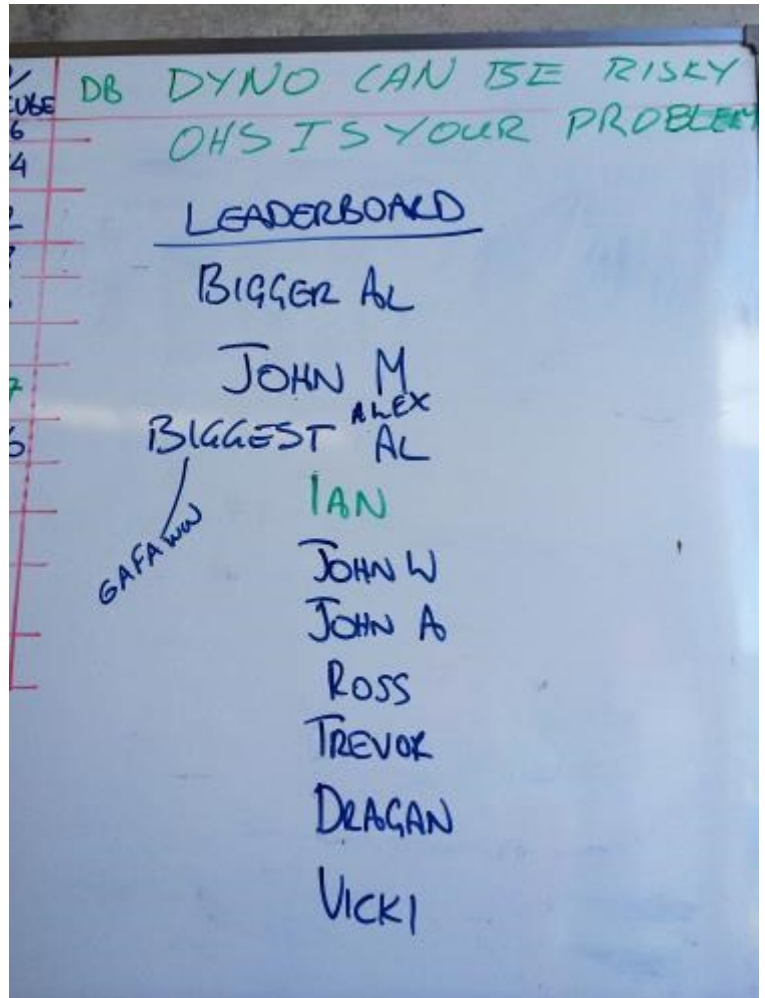 DB DYNO CAN BE RISKY
OHS IS YOUR PROBLEM
6
4
LEADERBOARD
BIGGER AL
JOHN M
ALEX
BIGGEST AL
GAFAWW
IAN
JOHN W
JOHN A
ROSS
TREVOR
DRAGAN
VICKI